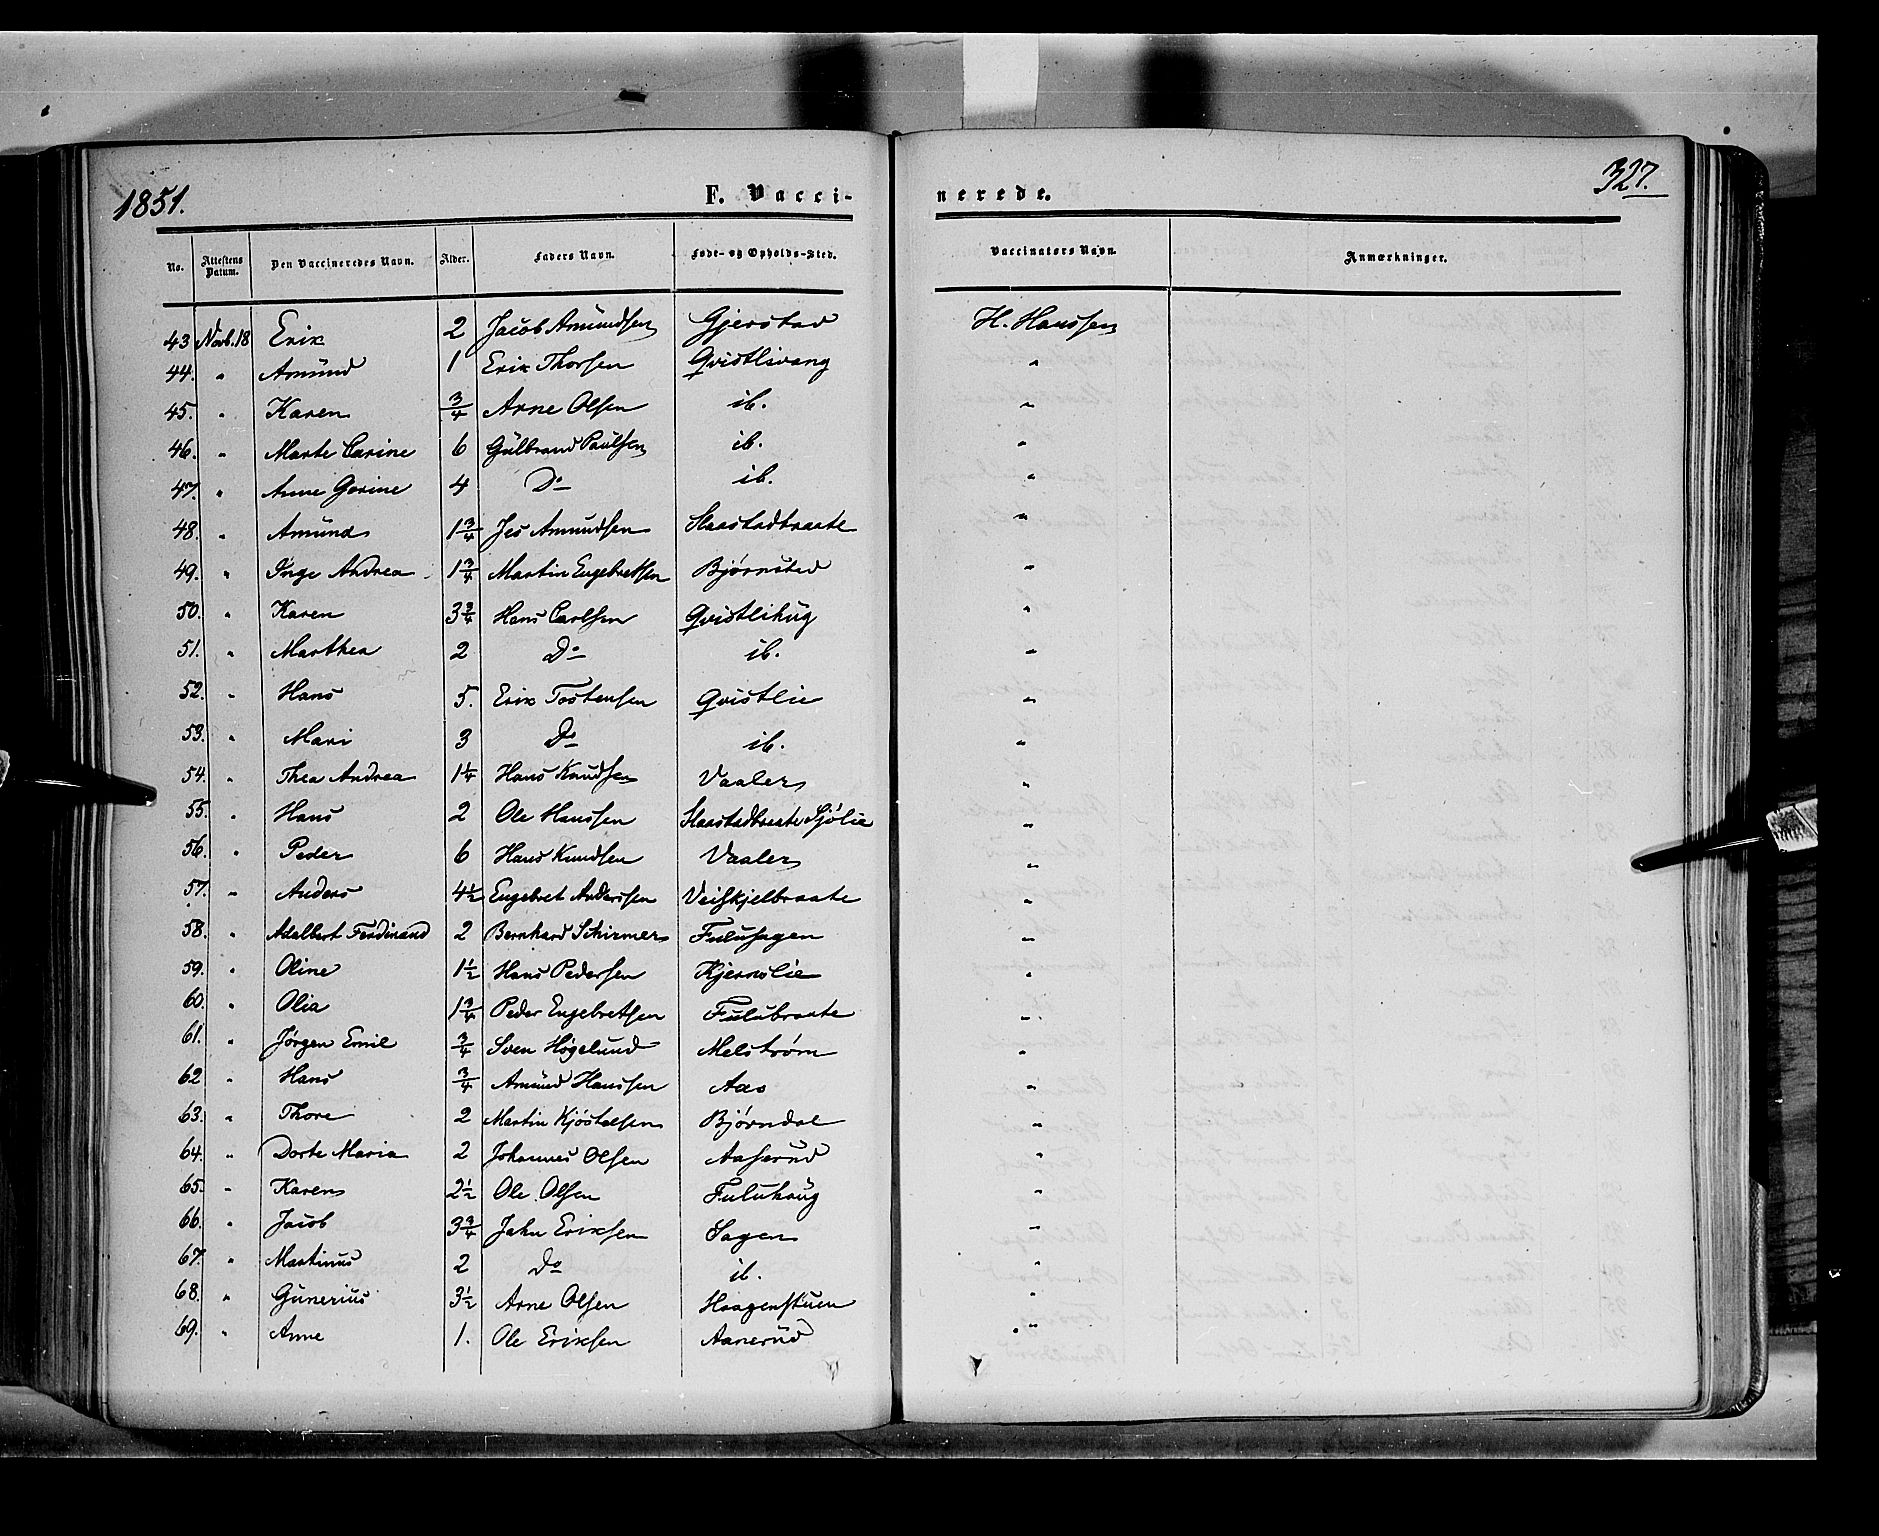 1851. F. Vacci- nerede. 327.
No. Attestens Datum. Den Vaccineredes Navn. Alder. Faders Navn. Føde- og Opholds-Sted. Vaccinatørs Navn. Anmærkninger.
43 Novb. 18 Erik 2 Jacob Amundsen Gjerstad H. Hanssen
44. " Amünd 1 Erik Thorsen Qvistlivang "
45. " Karen 3/4 Arne Olsen ib. "
46. " Marte Carine 6 Gülbrand Paülsen ib. "
47. " Anne Gorine 4 Do ib. "
48. " Amünd 1 3/4 Jes Amundsen Haastadbraate "
49. " Inge Andrea 1 3/4 Martin Engebretsen Bjørnsted "
50. " Karen 3 3/4 Hans Carlsen Qvistlihüg "
51. " Marthea 2 Do ib. "
52. " Hans 5. Erik Tostensen Qvistlie "
53. " Mari 3 Do ib. "
54. " Thea Andrea 1 1/4 Hans Knudsen Vaaler "
55. " Hans 2 Ole Hanssen Haastadbraate Sjølie "
56. " Peder 6 Hans Knudsen Vaaler "
57. " Anders 4 1/2 Engebret Anderssen Veiskjelbraate "
58. " Adalbert Ferdinand 2 Bernhard Schirmer Fulusagen "
59. " Oline 1 1/2 Hans Pedersen Kjernslie "
60. " Olia 1 3/4 Peder Engebretsen Fulubraate "
61. " Jørgen Emil 3/4 Sven Høgelund Melstrøm "
62 " Hans 3/4 Amünd Hanssen Aas "
63. " Thore 2 Martin Kjøstelsen Bjørndal "
64. " Dorte Maria 2 Johannes Olsen Aaserud "
65. " Karen 2 1/2 Ole Olsen Fuluhaüg "
66. " Jacob 3 3/4 Jahn Eriksen Sagen "
67. " Martinus 2 Do ib. "
68. " Günerius 3 1/2 Arne Olsen Haagenstuen "
69. " Anne 1. Ole Eriksen Aanerüd "